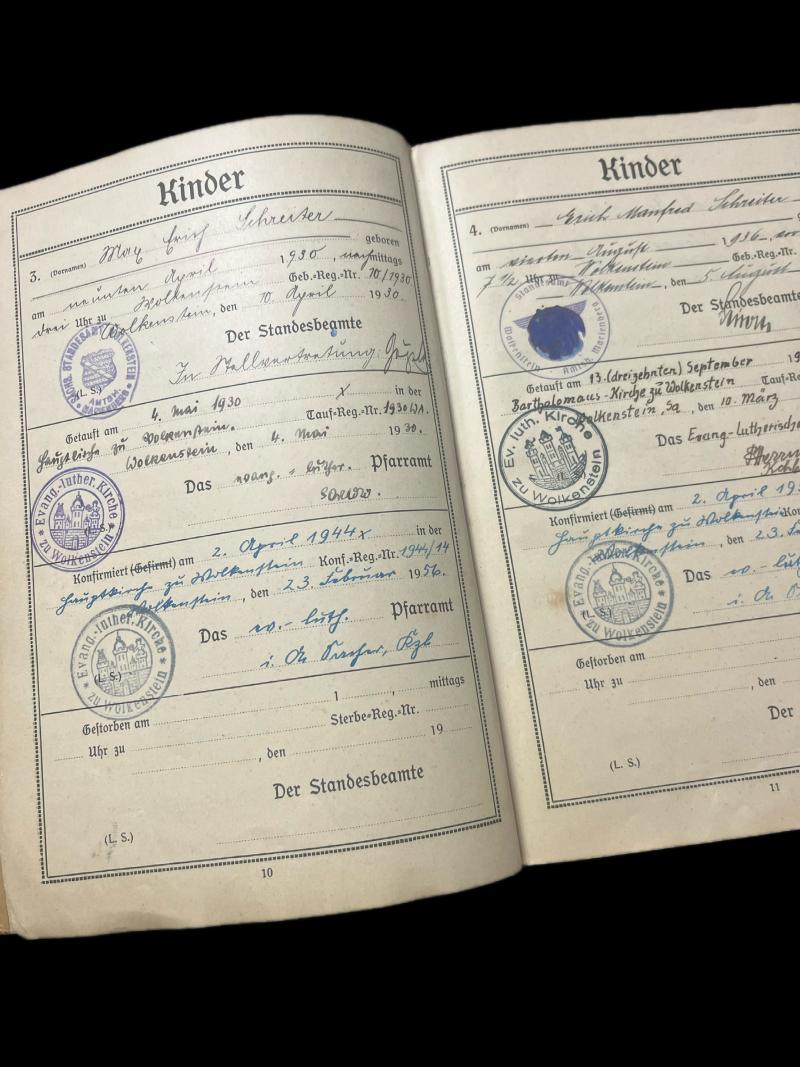 Kinder
3. (Vornamen) Max Erich Schreiter
geboren
am neunten April 1930, nachmittags
drei Uhr zu Wolkenstein Geb.-Reg.-Nr. 10/1930
Wolkenstein, den 10. April 1930.
Der Standesbeamte
In Stellvertretung:
SÄCHS. STANDESAMT WOLKENSTEIN
(L. S.)
Getauft am 4. Mai 1930 x in der
Hauptkirche zu Wolkenstein. Tauf-Reg.-Nr. 1930
Wolkenstein, den 4. Mai 1930.
Das evang.-luther. Pfarramt
Evang.-luther. Kirche zu Wolkenstein
(L. S.)
Konfirmiert (Gefirmt) am 2. April 1944 x in der
Hauptkirche zu Wolkenstein Konf.-Reg.-Nr. 1944/14
Wolkenstein, den 23. Februar 1956.
Das ev.-luth. Pfarramt
i. A. Kzl
Evang.-luther. Kirche zu Wolkenstein
(L. S.)
Gestorben am 1 , mittags
Uhr zu Sterbe-Reg.-Nr.
, den 19
Der Standesbeamte
(L. S.)
10
Kinder
4. (Vornamen) Erich Manfred Schreiter
am vierten August 1936
7 1/2 Uhr zu Wolkenstein Geb.-Reg.
Wolkenstein, den 5. August
Der Standesbeamte
Standesamt Wolkenstein
Getauft am 13. (dreizehnten) September 19
Bartholomäus-Kirche zu Wolkenstein Tauf-Reg.
Wolkenstein, Sa, den 10. März
Das Evang.-Lutherische
Ev. luth. Kirche zu Wolkenstein
Konfirmiert (Gefirmt) am 2. April 19
Hauptkirche zu Wolkenstein Kon
Wolkenstein, den 23. F
Das ev.-luth
i. A.
Evang.-luther. Kirche zu Wolkenstein
(L. S.)
Gestorben am
Uhr zu
, den
Der
(L. S.)
11